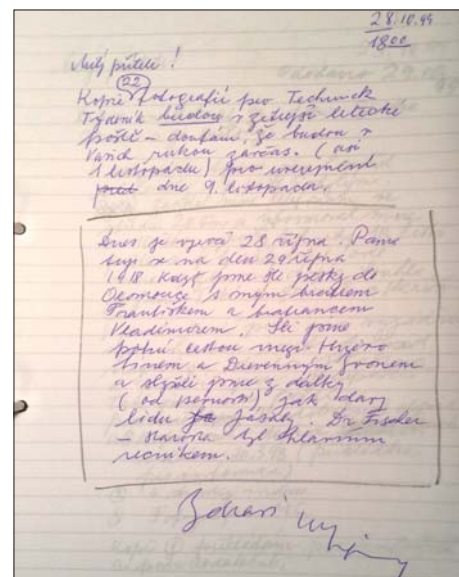 28.10.99
18⁰⁰
Milý příteli!
22
Kopie fotografií pro Technick
Týdeník budou v zítřejší letecké
poště – doufám, že budou v
Vašich rukou zavčas. (asi
1 listopadu) pro uveřejnění
před dne 9. listopadu.
Dnes je výročí 28 října. Pama
tuji se na den 29 října
1918 když jsme šli pěšky do
Olomouce s mým bratrem
Františkem a bratrancem
Vladimírem. Šli jsme
polní cestou mezi
a Dřevenným Zvonem
a slyšeli jsme z dálky
(od pevnosti) jak davy
lidu jásaly. Dr Fischer
– starosta byl hlavním
řečníkem.
Zdraví